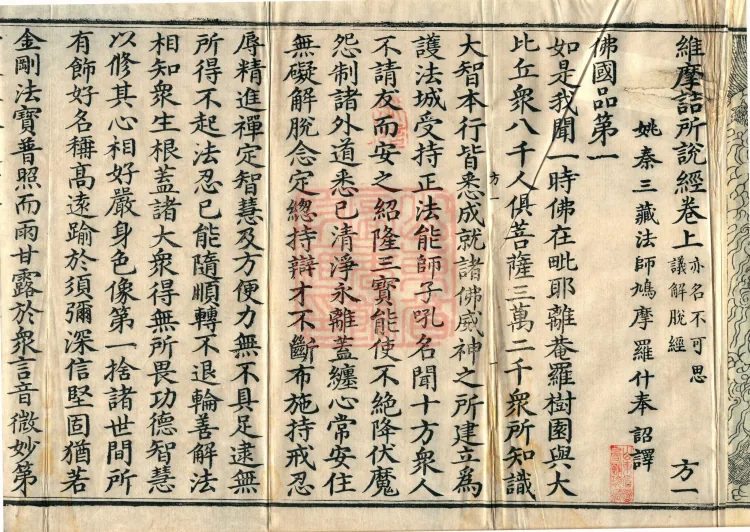 維摩詰所說經卷上 亦名不可思議解脫經 方一
姚秦三藏法師鳩摩羅什奉 詔譯
佛國品第一
如是我聞一時佛在毗耶離菴羅樹園與大
比丘衆八千人俱菩薩三萬二千衆所知識
大智本行皆悉成就諸佛威神之所建立爲
護法城受持正法能師子吼名聞十方衆人
不請友而安之紹隆三寶能使不絕降伏魔
怨制諸外道悉已清淨永離蓋纏心常安住
無礙解脫念定總持辯才不斷布施持戒忍
辱精進禪定智慧及方便力無不具足逮無
所得不起法忍已能隨順轉不退輪善解法
相知衆生根蓋諸大衆得無所畏功德智慧
以修其心相好嚴身色像第一捨諸世間所
有飾好名稱高遠踰於須彌深信堅固猶若
金剛法寶普照而雨甘露於衆言音微妙第
方一